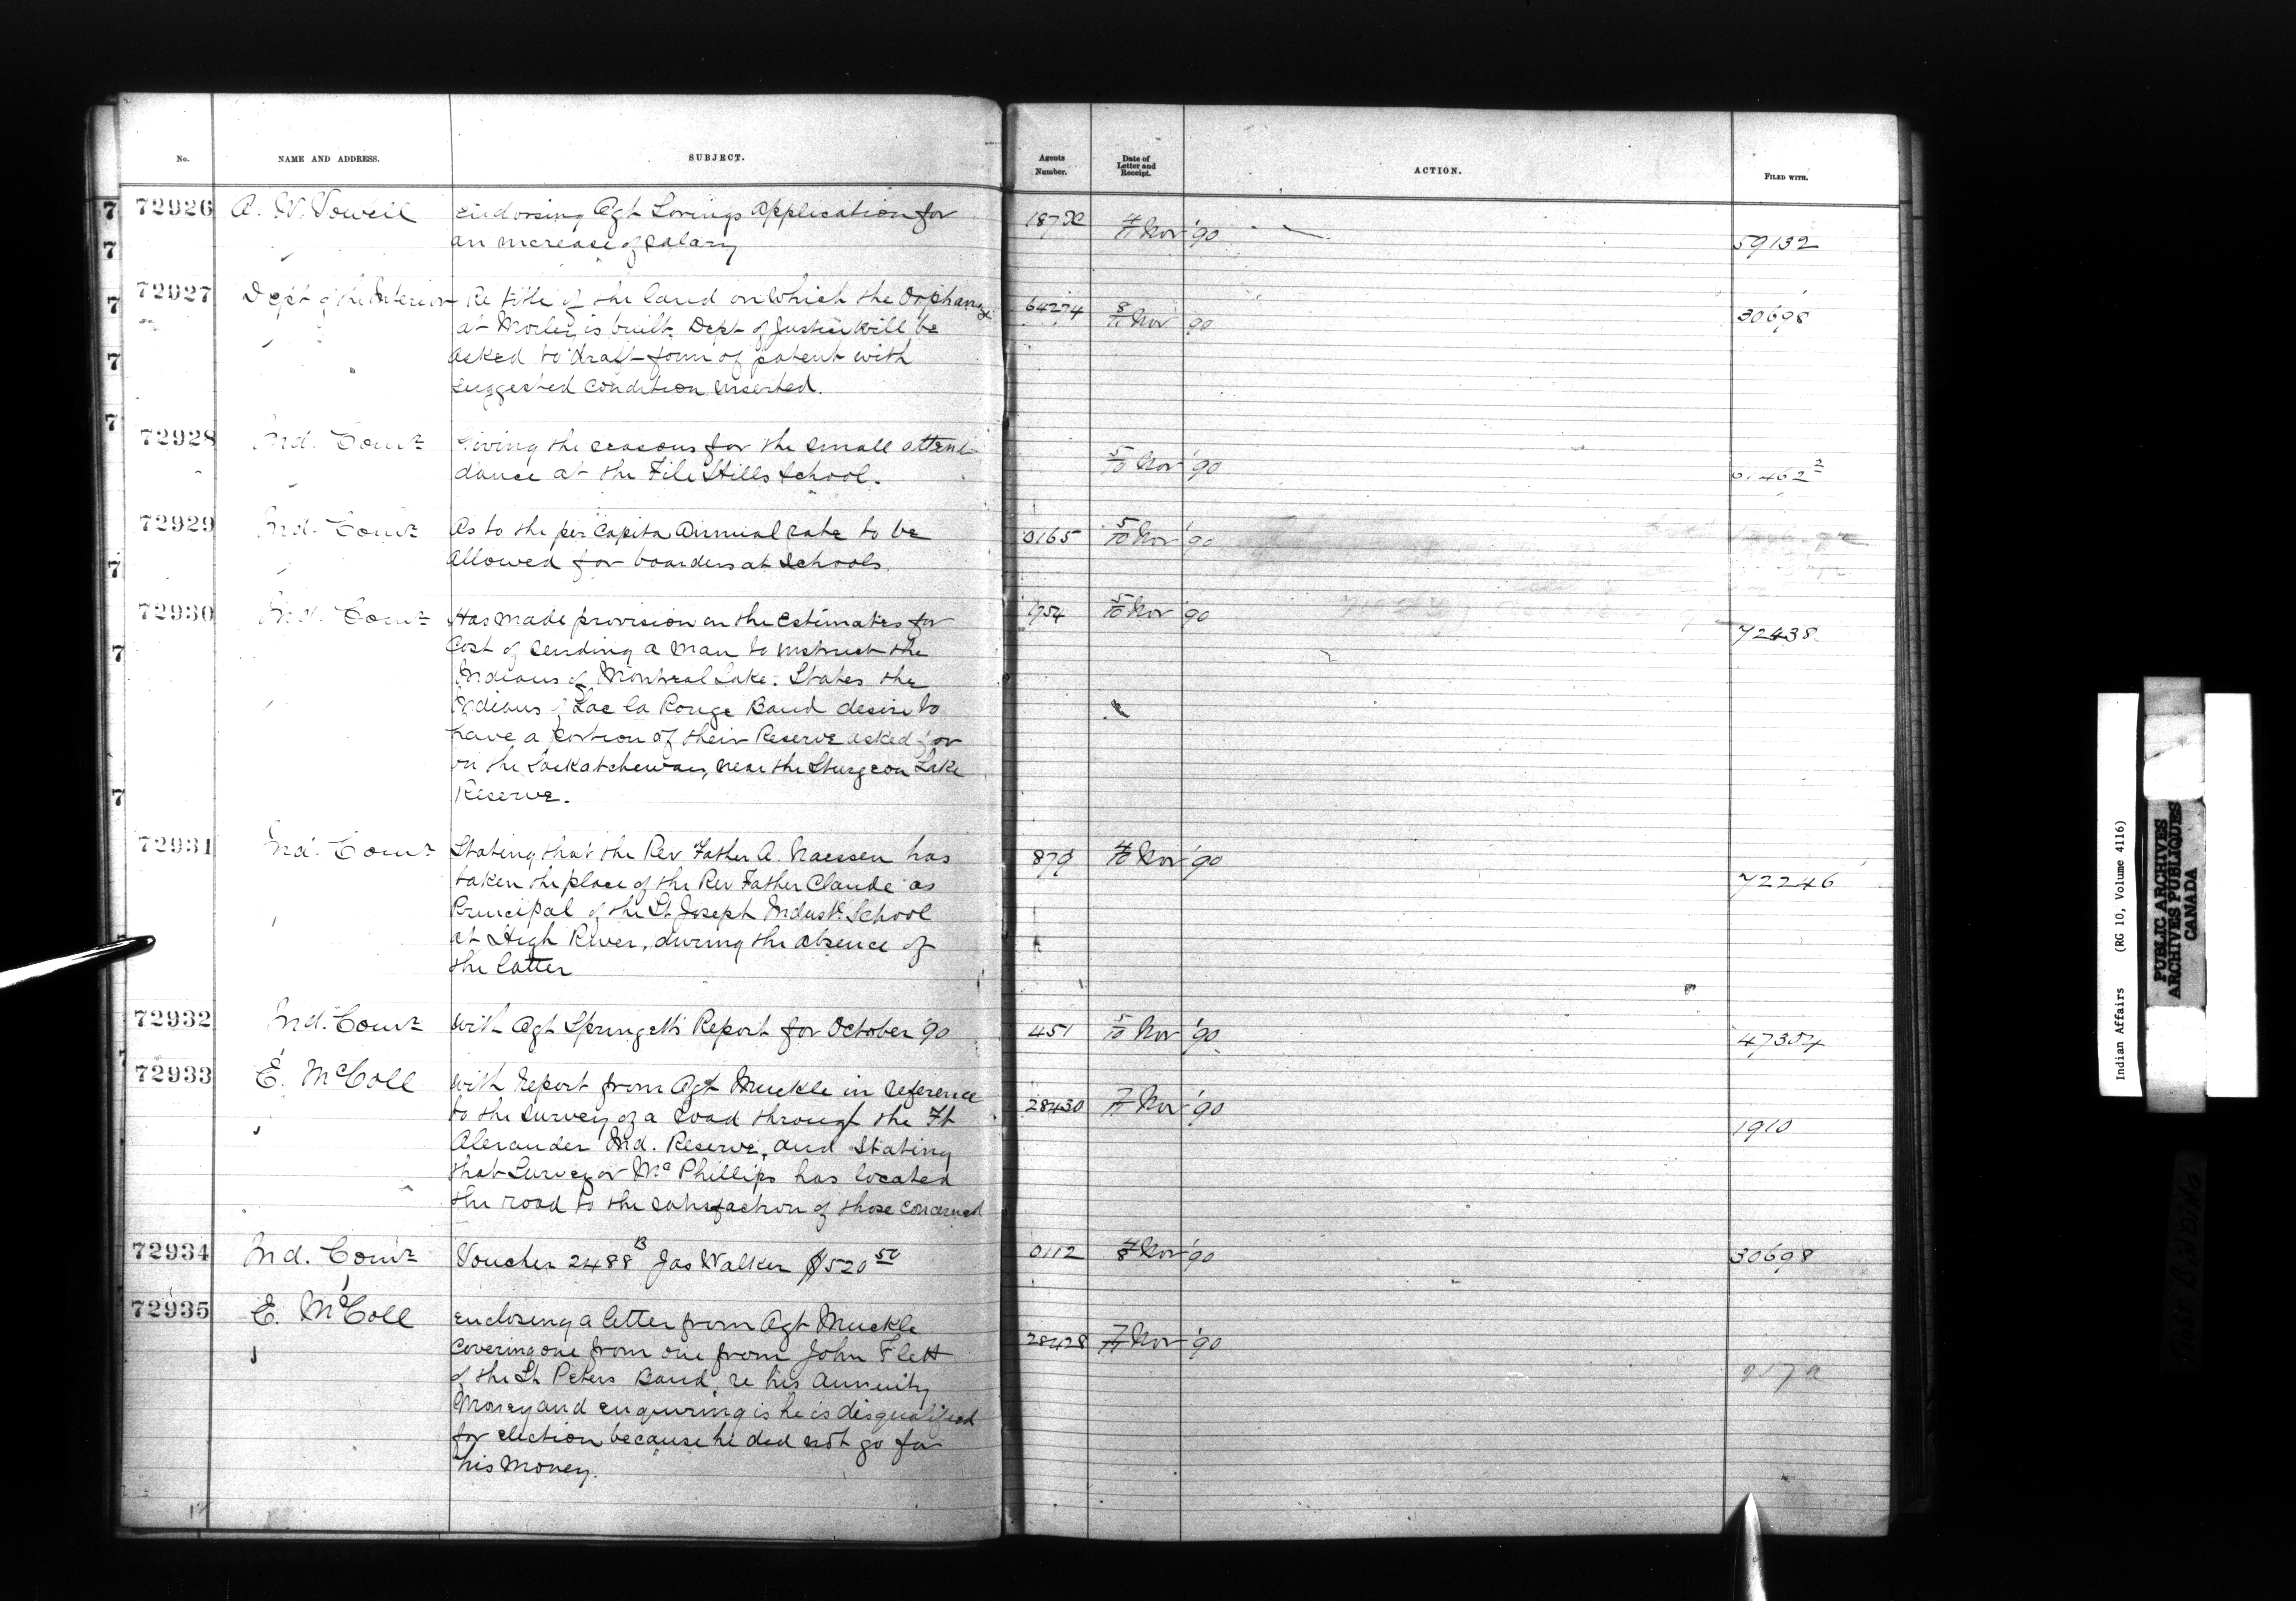 No. NAME AND ADDRESS. SUBJECT. Agents Number. Date of Letter and Receipt. ACTION. FILED WITH.
72926 A. W. Vowell endorsing Agt Lorings application for 4/11 Nov '90 59132
an increase of salary
72927 Dept of the Interior Re title of the land on which the Orphanage 64274 8/10 Nov 90 30698
at Morley is built. Dept of Justice will be
asked to draft form of patent with
suggested condition inserted.
72928 Ind. Comr Giving the reasons for the small atten- 5/10 Nov '90 61462²
dance at the File Hills School.
72929 Ind. Comr As to the per Capita Annual rate to be 0165 5/10 Nov '90
allowed for boarders at Schools.
72930 Ind. Comr Has made provision in the Estimates for 1954 5/10 Nov '90 72438
Cost of sending a man to instruct the
Indians of Montreal Lake. States the
Indians of Lac la Ronge Band desire to
have a portion of their Reserve asked for
on the Saskatchewan, near the Sturgeon Lake
Reserve.
72931 Ind. Comr Stating that the Rev Father A. Naessen has 879 4/10 Nov '90 72246
taken the place of the Rev Father Claude as
Principal of the St. Joseph Industl. School
at High River, during the absence of
the latter
72932 Ind. Comr with Agt Springett's Report for October '90 451 5/10 Nov '90 47354
72933 E. McColl with Report from Agt Muckle in reference 28430 7/11 Nov '90 1910
to the survey of a road through the Ft
Alexander Ind. Reserve, and Stating
that Surveyor McPhillips has located
the road to the satisfaction of those concerned
72934 Ind. Comr Voucher 2488 B Jas Walker $520 50 0112 4/8 Nov '90 30698
72935 E. McColl enclosing a letter from Agt Muckle 28428 7/11 Nov '90
Covering one from one from John Flett
of the St Peters Band, re his annuity
Money and enquiring is he is disqualified
for election because he did not go for
his money.
Indian Affairs (RG 10, Volume 4116)
PUBLIC ARCHIVES
ARCHIVES PUBLIQUES
CANADA
TIGHT BINDING